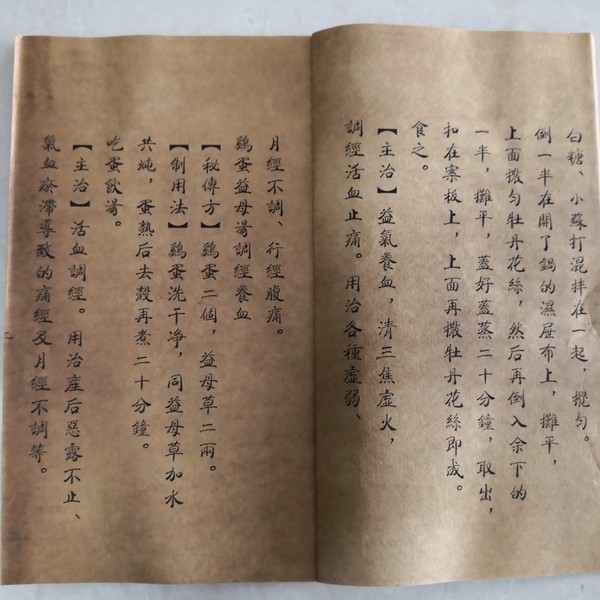 白糖、小蘇打混拌在一起，攪勻。
倒一半在開了鍋的濕屉布上，攤平，
上面撒勻牡丹花絲，然后再倒入余下的
一半，攤平，蓋好蓋蒸二十分鐘，取出，
扣在案板上，上面再撒牡丹花絲即成。
食之。
【主治】益氣養血，清三焦虛火，
調經活血止痛。用治各種虛弱、
月經不調、行經腹痛。
鷄蛋益母湯調經養血
【秘傳方】鷄蛋二個，益母草二兩。
【制用法】鷄蛋洗干净，同益母草加水
共炖，蛋熟后去殼再煮二十分鐘。
吃蛋飲湯。
【主治】活血調經。用治産后惡露不止、
氣血瘀滯導致的痛經及月經不調等。